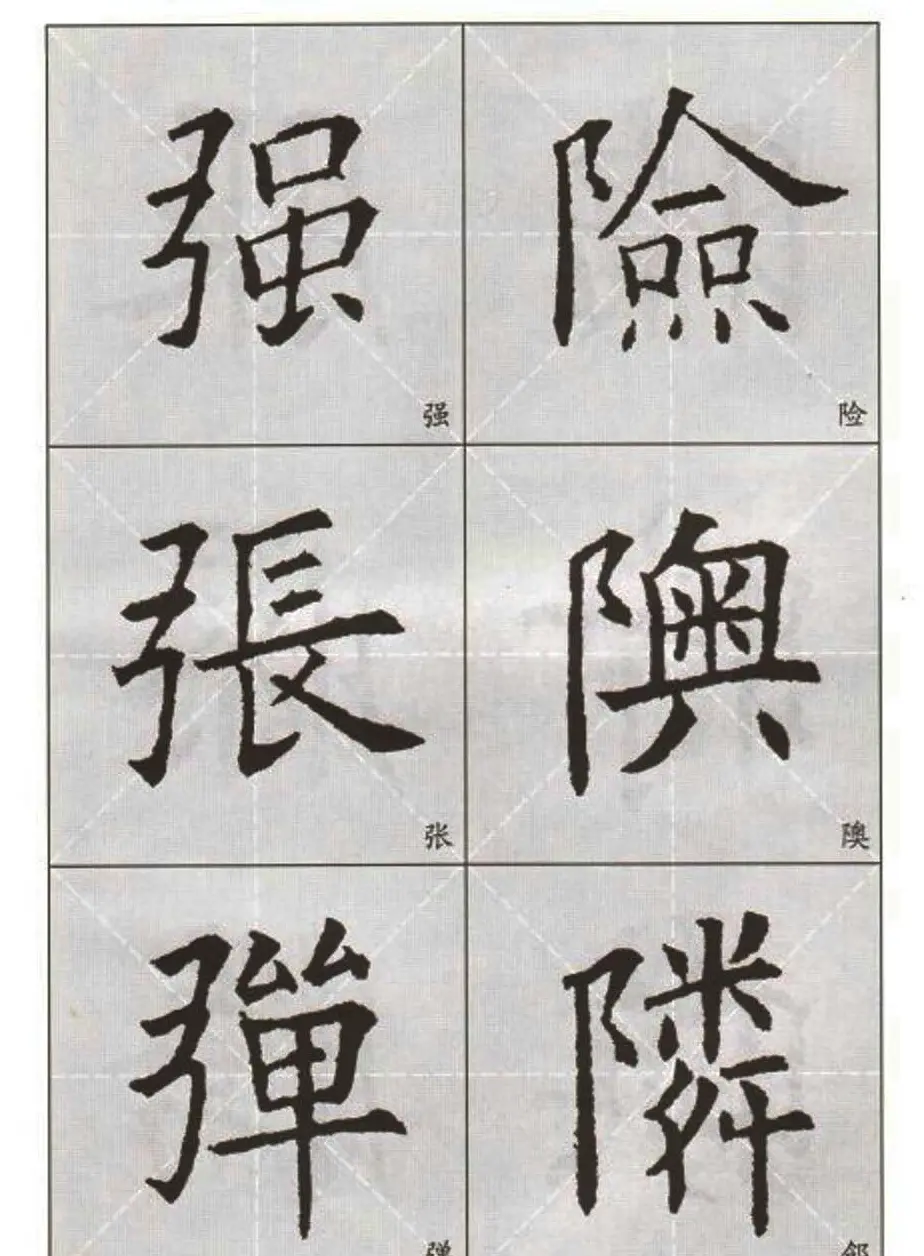 强 險
强 险
張 隩
张 隩
彈 隣
弹 邻